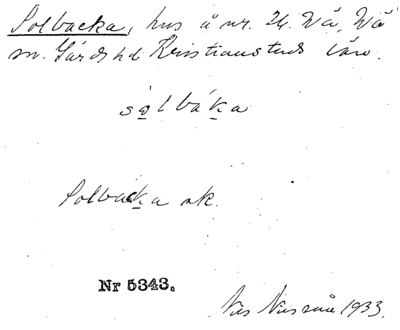 Solbacka, hus å nr. 24. Vä, Vä
sn. Gärds hd. Kristianstads län.
so̲lbák̲a
Solbacka ak.
Nr 5343.
Nils 1933.